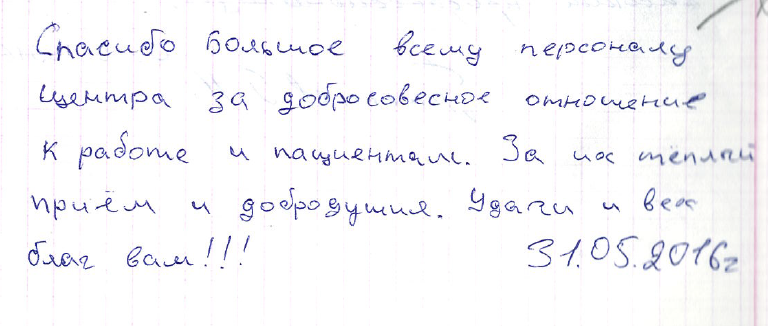 Спасибо большое всему персоналу
центра за добросовесное отношение
к работе и пациентам. За их тёплый
приём и добродушия. Удачи и всех
благ вам!!! 31.05.2016г